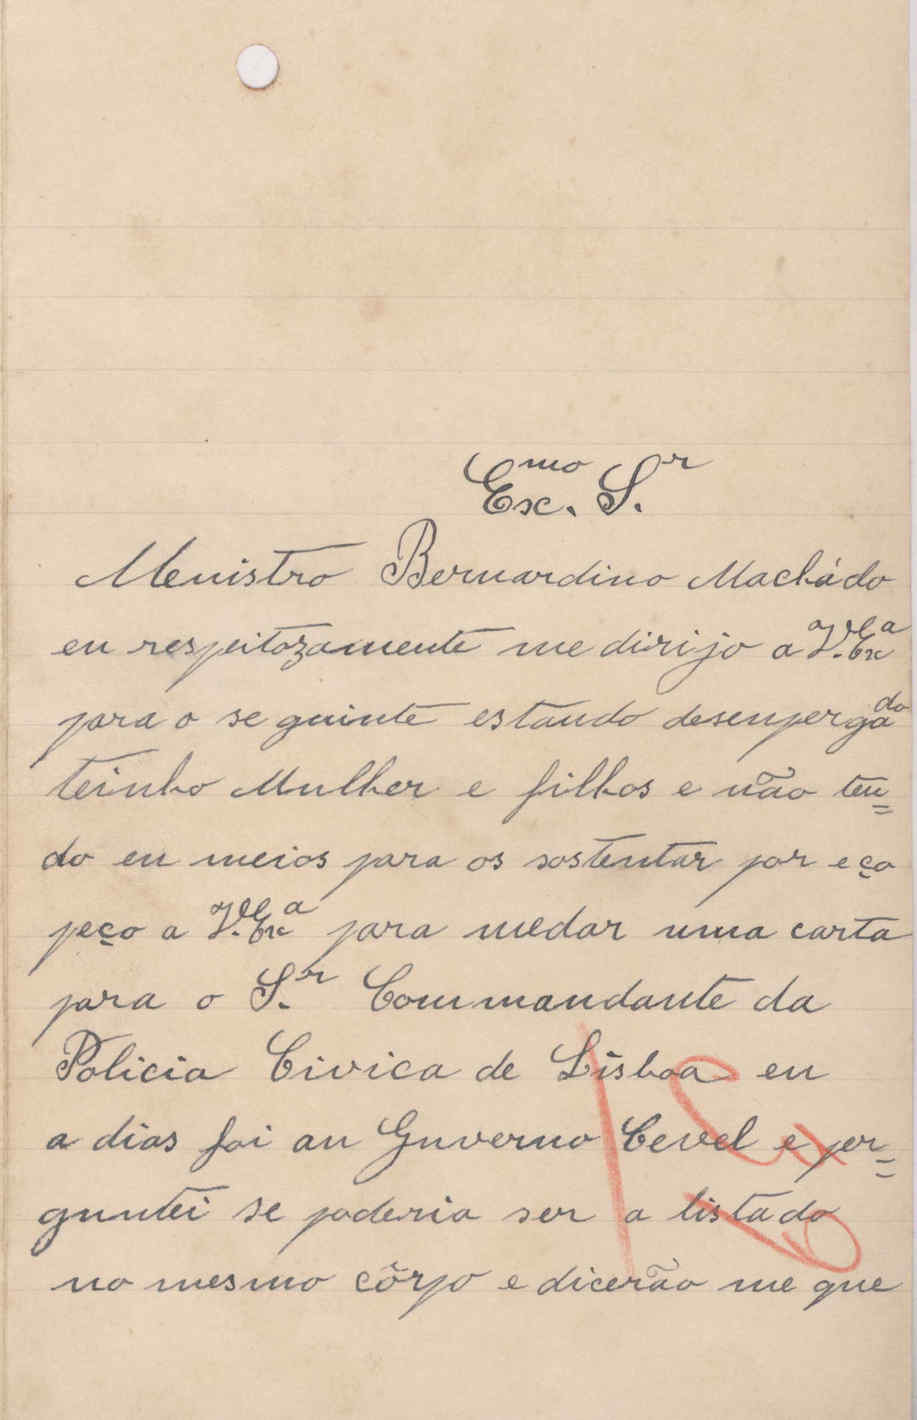 Exc.mo S.r
Menistro Bernardino Machádo
eu respeitozamente me dirijo a V.Exca
para o seguinte estando desenpergado
teinho Mulher e filhos e não ten=
do eu meios para os sostentar por eço
peço a V.Exca para medar uma carta
para o S.r Commandante da
Policia Civica de Lisboa eu
a dias foi au Guverno Cevel e per=
guntei se poderia ser a listado
no mesmo côrpo e dicerão me que